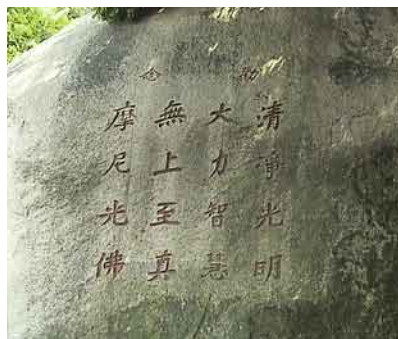 勸念
清淨光明
大力智慧
無上至真
摩尼光佛